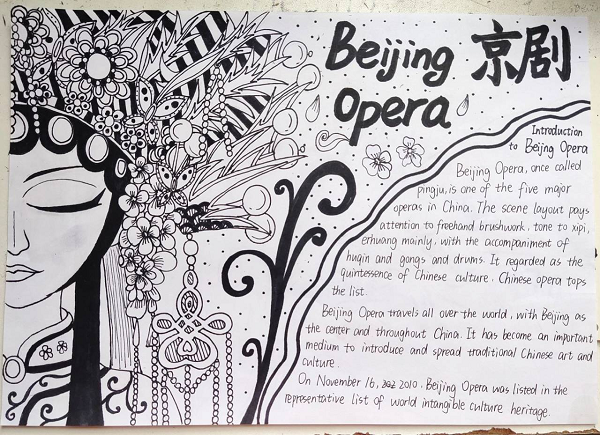 Beijing 京剧
Opera
Introduction
to Beijng Opera
Beijing Opera, once called
pingju, is one of the five major
operas in China. The scene layout pays
attention to freehand brushwork, tone to xipi,
erhuang mainly, with the accompaniment of
huqin and gongs and drums. It regarded as the
quintessence of Chinese culture. Chinese opera tops
the list.
Beijing Opera travels all over the world, with Beijing as
the center and throughout China. It has become an important
medium to introduce and spread traditional Chinese art and
culture.
On November 16, 2010. Beijing Opera was listed in the
representative list of world intangible culture heritage.